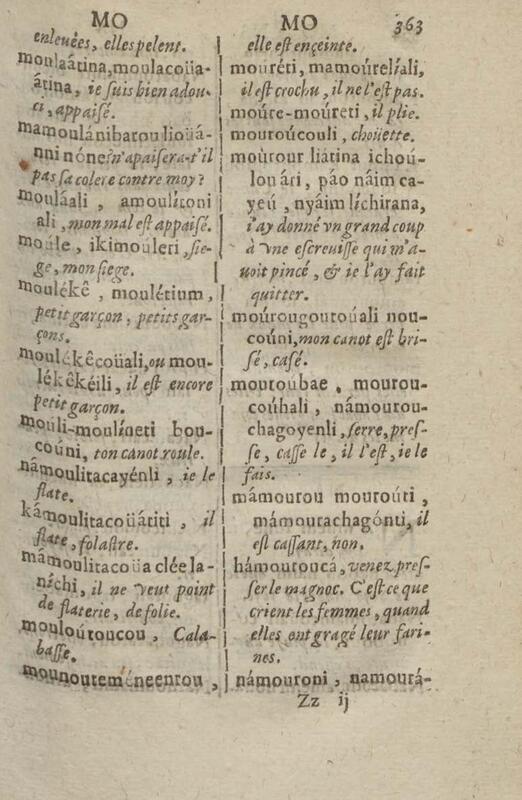 MO
enleuées, elles pelent.
moulaátina, moulacoüa-
átina, ie suis bien adou-
ci, appaisé.
mamoulánibatou lioüá-
nni nóne? n'apaisera-t'il
pas sa colere contre moy?
mouláali, amoulítoni
ali, mon mal est appaisé.
moúle, ikimoúleri, sie-
ge, mon siege.
moulékê, moulétium,
petit garçon, petits gar-
çons.
moulékêcoüali, ou mou-
lékêkéili, il est encore
petit garçon.
moúli-moulíneti bou-
coúni, ton canot roule.
námoulitacayénli, ie le
flate.
kámoulitacoüátiti, il
flate, folastre.
mámoulitacoüa clée la-
níchi, il ne veut point
de flaterie, de folie.
mouloútoucou, Cala-
basse.
mounouteméneentou,
MO 363
elle est enceinte.
mouréti, mamoúrelíali,
il est crochu, il ne l'est pas.
moúre-moúreti, il plie.
mouroúcouli, choüette.
moùrour liátina ichoú-
louári, páo náim ca-
yeú, nyáim líchirana,
i'ay donné vn grand coup
à vne escreuisse qui m'a-
uoit pincé, & ie l'ay fait
quitter.
moúrougoutoúali nou-
coúni, mon canot est bri-
sé, casé.
mouroubae, mourou-
coúhali, námourou-
chagoyenli, serre, pres-
se, casse le, il l'est, ie le
fais.
mámourou mouroúti,
mámourachagónti, il
est cassant, non.
hámouroucá, venez pres-
ser le magnoc. C'est ce que
crient les femmes, quand
elles ont gragé leur fari-
nes.
námouroni, namourá-
Zz ij